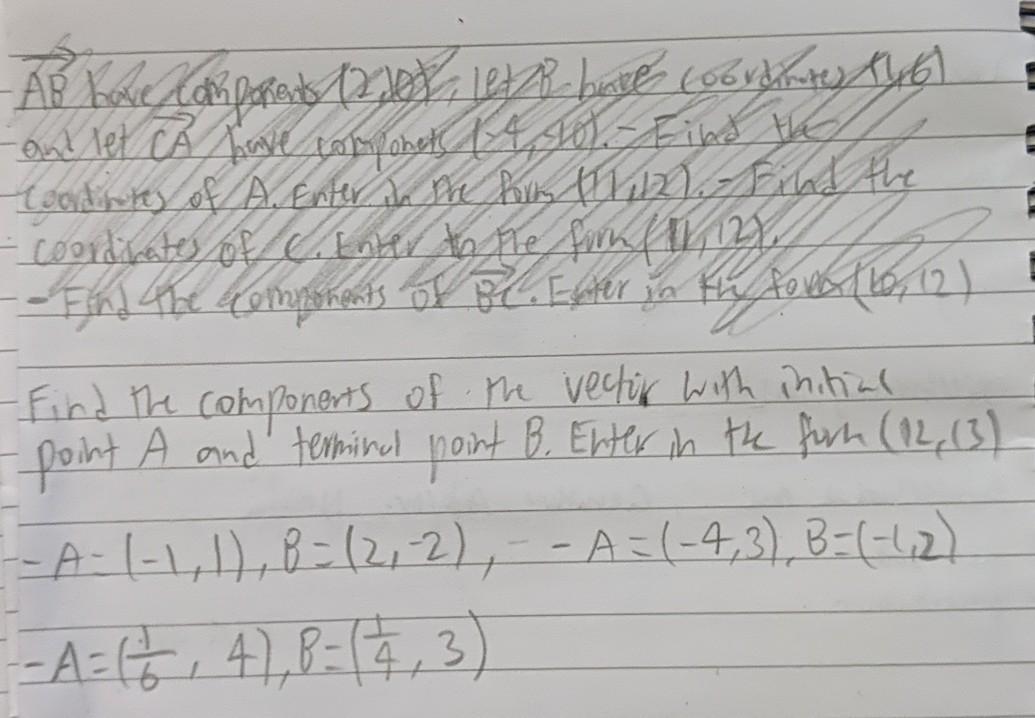 AB have components (2,10), let B have coordinates (1,6)
and let CA have componets (-4,-10). - Find the
coordinates of A. Enter in the form (11,12). - Find the
coordinates of C. Enter in the form (11,12).
- Find the components of BC. Enter in the form (10,12)
Find the components of the vector with initial
point A and terminal point B. Enter in the form (12,13)
- A = (-1,1), B = (2,-2), - - A = (-4,3), B = (-1,2)
- A = (1/6, 4), B = (1/4, 3)